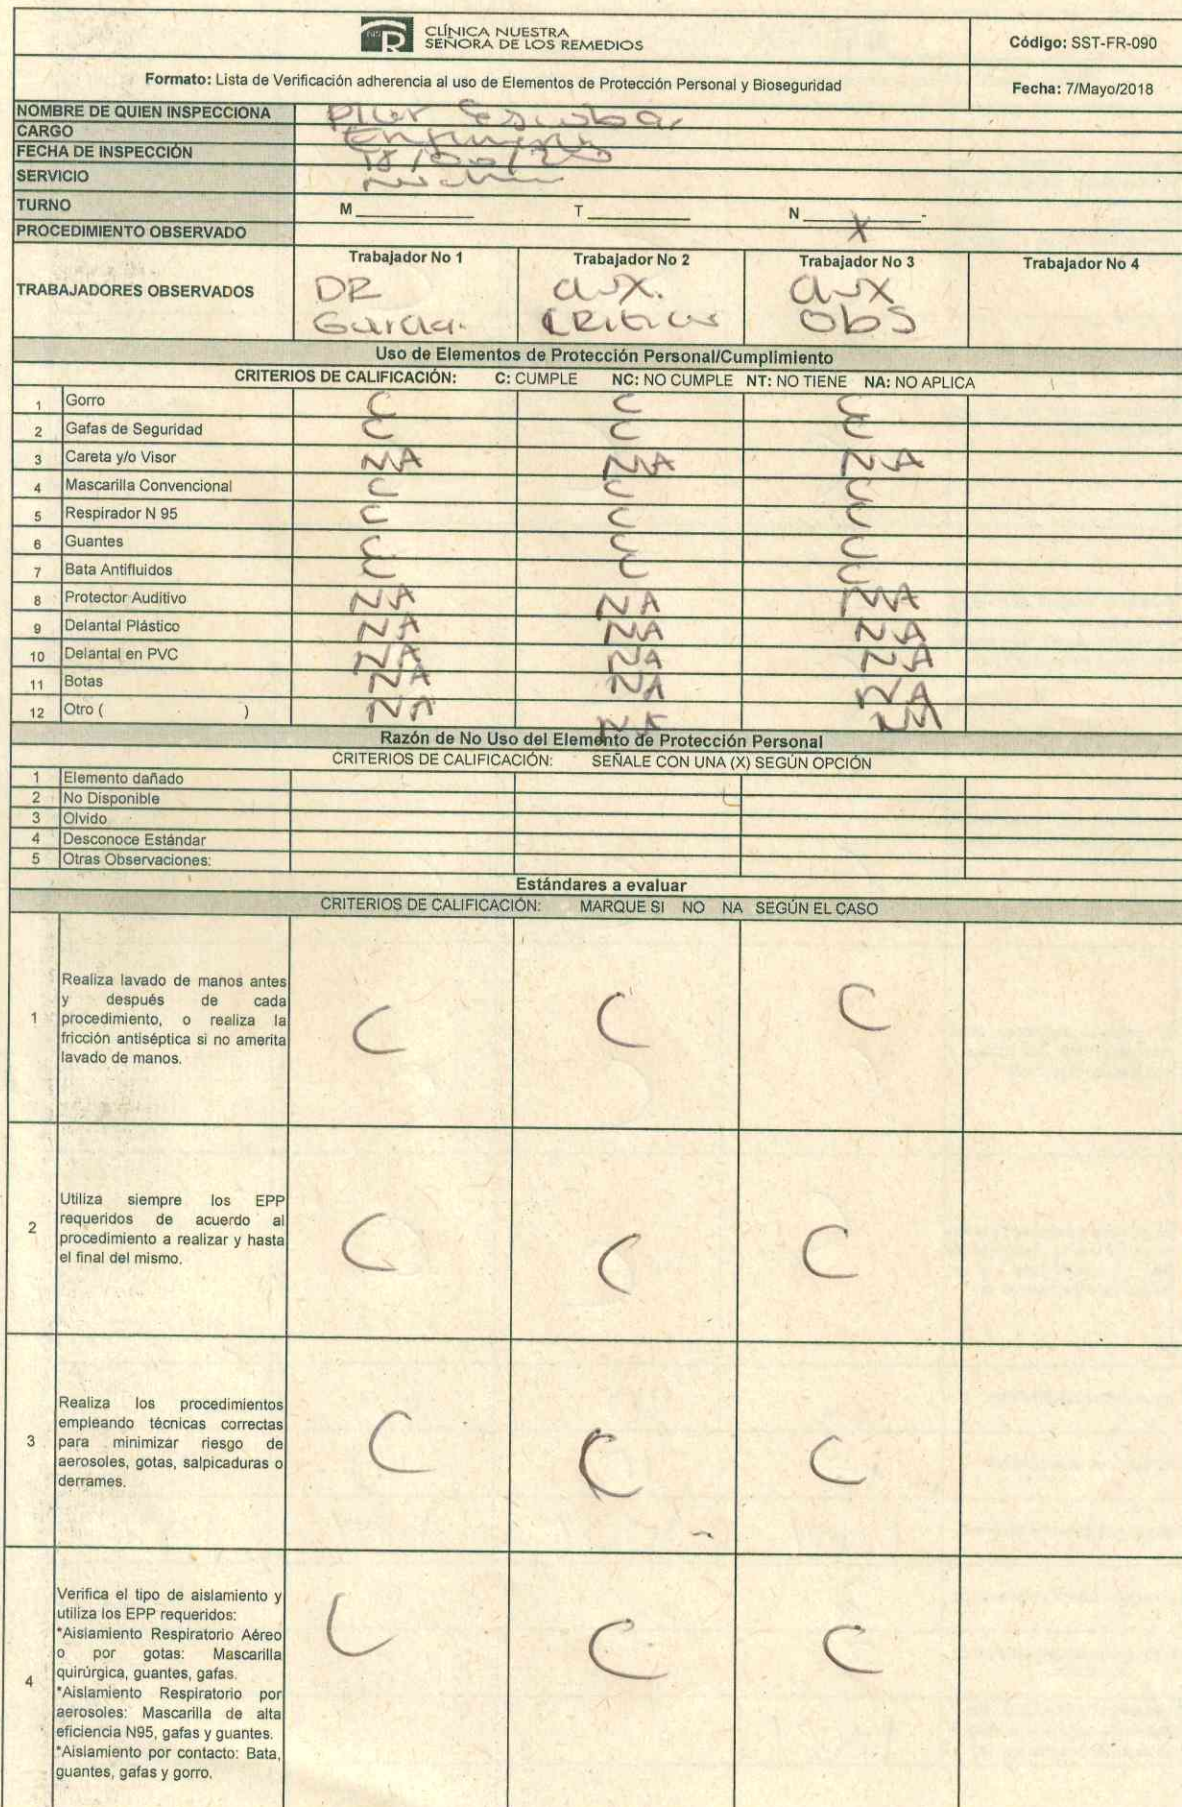 NSR CLÍNICA NUESTRA
SEÑORA DE LOS REMEDIOS
Código: SST-FR-090
Formato: Lista de Verificación adherencia al uso de Elementos de Protección Personal y Bioseguridad
Fecha: 7/Mayo/2018
NOMBRE DE QUIEN INSPECCIONA Escobar
CARGO
FECHA DE INSPECCIÓN
SERVICIO
TURNO M T N X
PROCEDIMIENTO OBSERVADO
TRABAJADORES OBSERVADOS
Trabajador No 1 Trabajador No 2 Trabajador No 3 Trabajador No 4
DR aux. aux
Garcia. CRiticos Obs
Uso de Elementos de Protección Personal/Cumplimiento
CRITERIOS DE CALIFICACIÓN: C: CUMPLE NC: NO CUMPLE NT: NO TIENE NA: NO APLICA
1 Gorro C C C
2 Gafas de Seguridad C C C
3 Careta y/o Visor NA NA NA
4 Mascarilla Convencional C C C
5 Respirador N 95 C C C
6 Guantes C C C
7 Bata Antifluidos C C C
8 Protector Auditivo NA NA NA
9 Delantal Plástico NA NA NA
10 Delantal en PVC NA NA NA
11 Botas NA NA NA
12 Otro ( ) NA NA NA
Razón de No Uso del Elemento de Protección Personal
CRITERIOS DE CALIFICACIÓN: SEÑALE CON UNA (X) SEGÚN OPCIÓN
1 Elemento dañado
2 No Disponible
3 Olvido
4 Desconoce Estándar
5 Otras Observaciones:
Estándares a evaluar
CRITERIOS DE CALIFICACIÓN: MARQUE SI NO NA SEGÚN EL CASO
Realiza lavado de manos antes
y después de cada
1 procedimiento, o realiza la
fricción antiséptica si no amerita
lavado de manos.
C C C
Utiliza siempre los EPP
2 requeridos de acuerdo al
procedimiento a realizar y hasta
el final del mismo.
C C C
Realiza los procedimientos
empleando técnicas correctas
3 para minimizar riesgo de
aerosoles, gotas, salpicaduras o
derrames.
C C C
Verifica el tipo de aislamiento y
utiliza los EPP requeridos:
*Aislamiento Respiratorio Aéreo
o por gotas: Mascarilla
quirúrgica, guantes, gafas.
4 *Aislamiento Respiratorio por
aerosoles: Mascarilla de alta
eficiencia N95, gafas y guantes.
*Aislamiento por contacto: Bata,
guantes, gafas y gorro.
C C C